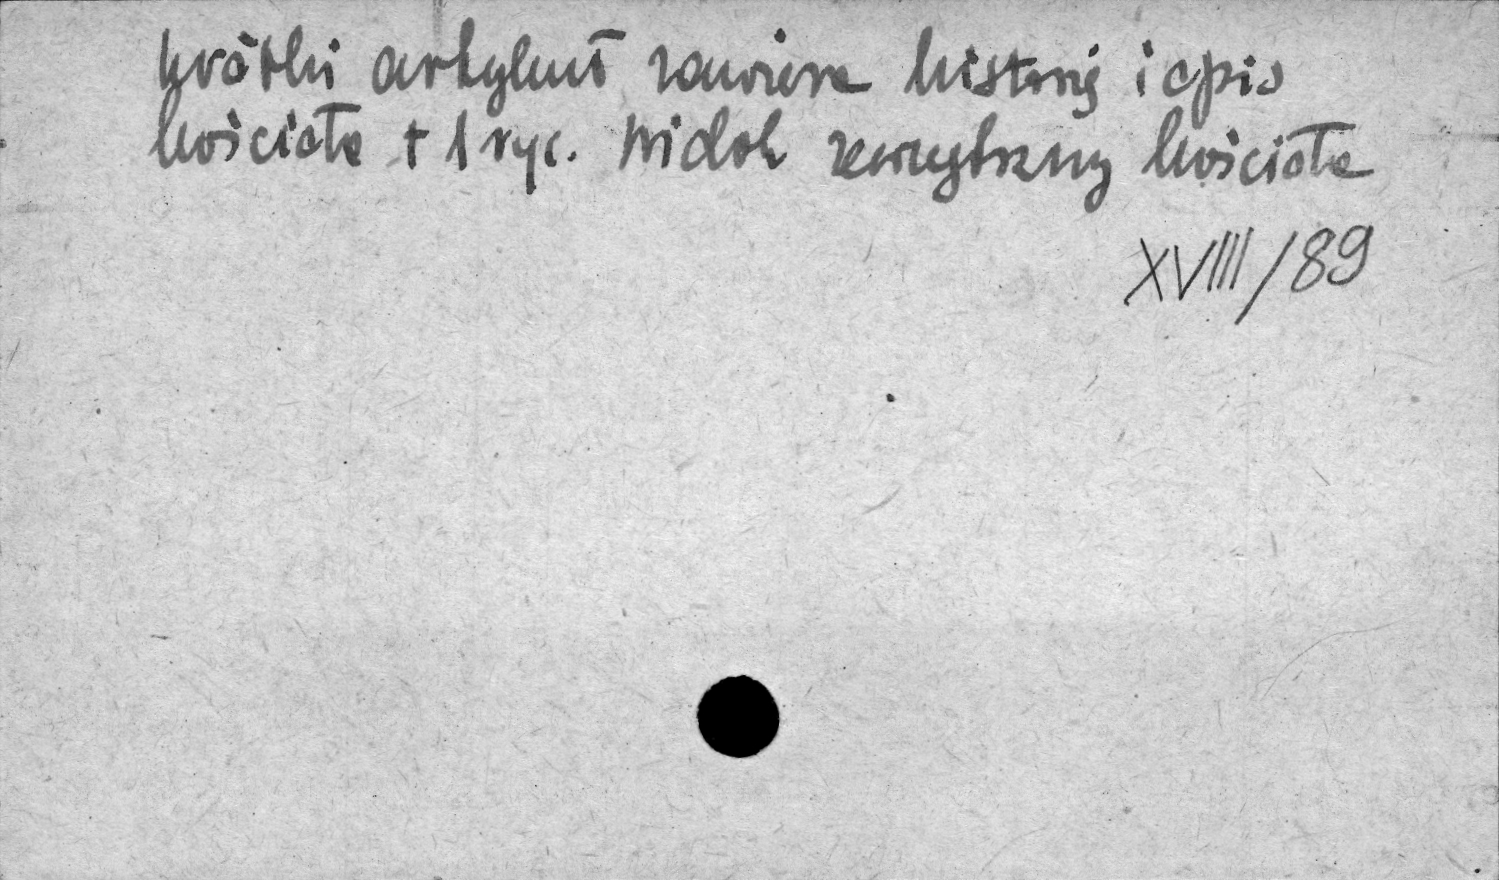 krótki artykuł zawiera historię i opis
kościoła + 1 ryc. widok zewnętrzny kościoła
XVIII/89